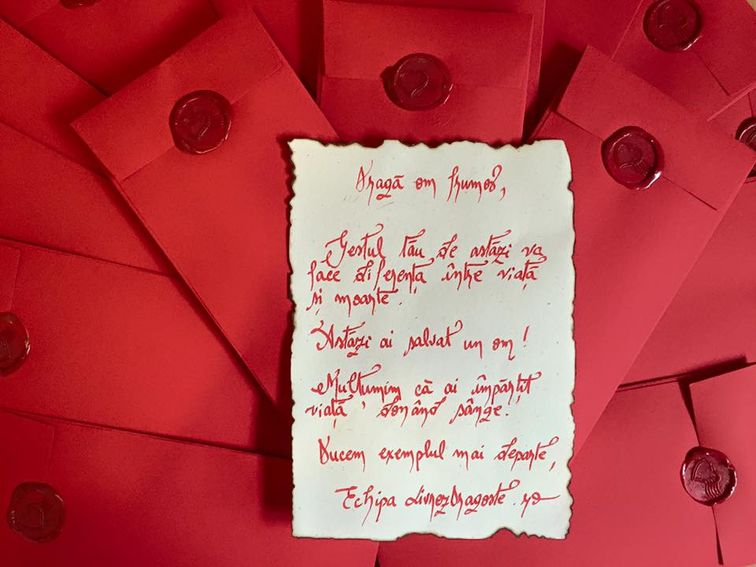 Dragă om frumos,
Gestul tău de astăzi va
face diferența între viață
și moarte.
Astăzi ai salvat un om!
Mulțumim că ai împărțit
viață donând sânge.
Ducem exemplul mai departe,
Echipa LivrezDragoste.ro